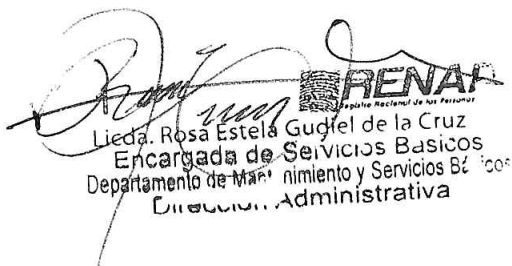 RENAP
Registro Nacional de las Personas
Licda. Rosa Estela Gudiel de la Cruz
Encargada de Servicios Basicos
Departamento de Mantenimiento y Servicios Básicos
Dirección Administrativa